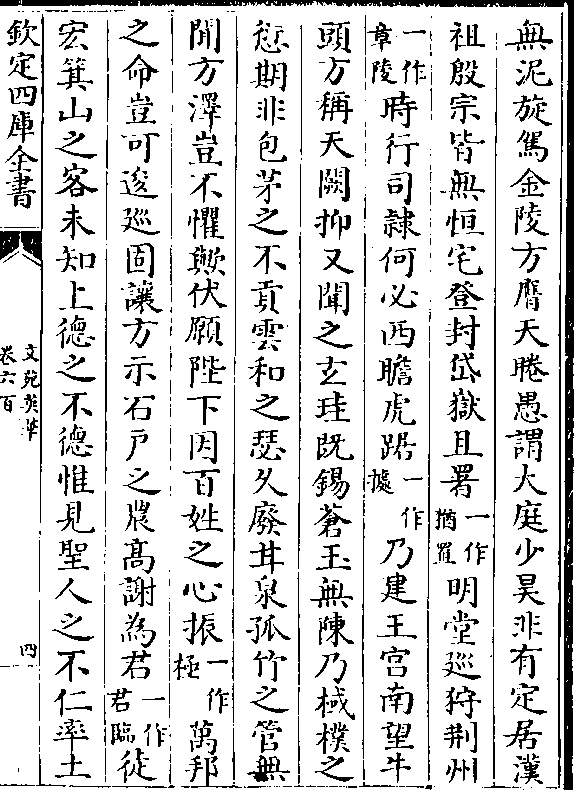 無泥旋駕金陵方膺天睠愚謂大庭少昊非有定居漢
祖殷宗皆無恒宅登封岱嶽且署一作猶置明堂廵狩荆州
一作章陵時行司隷何必西瞻虎踞一作據乃建王宫南望牛
頭方稱天闕抑又聞之玄珪既錫蒼玉無陳乃棫樸之
愆期非包茅之不貢雲和之瑟久廢甘泉孤竹之管無
聞方澤豈不懼歟伏願陛下因百姓之心振一作極萬邦
之命豈可逡廵固讓方示石戸之農高謝為君一作君臨徒
宏箕山之客未知上德之不德惟見聖人之不仁率土
欽定四庫全書
文苑英華
卷六百
四